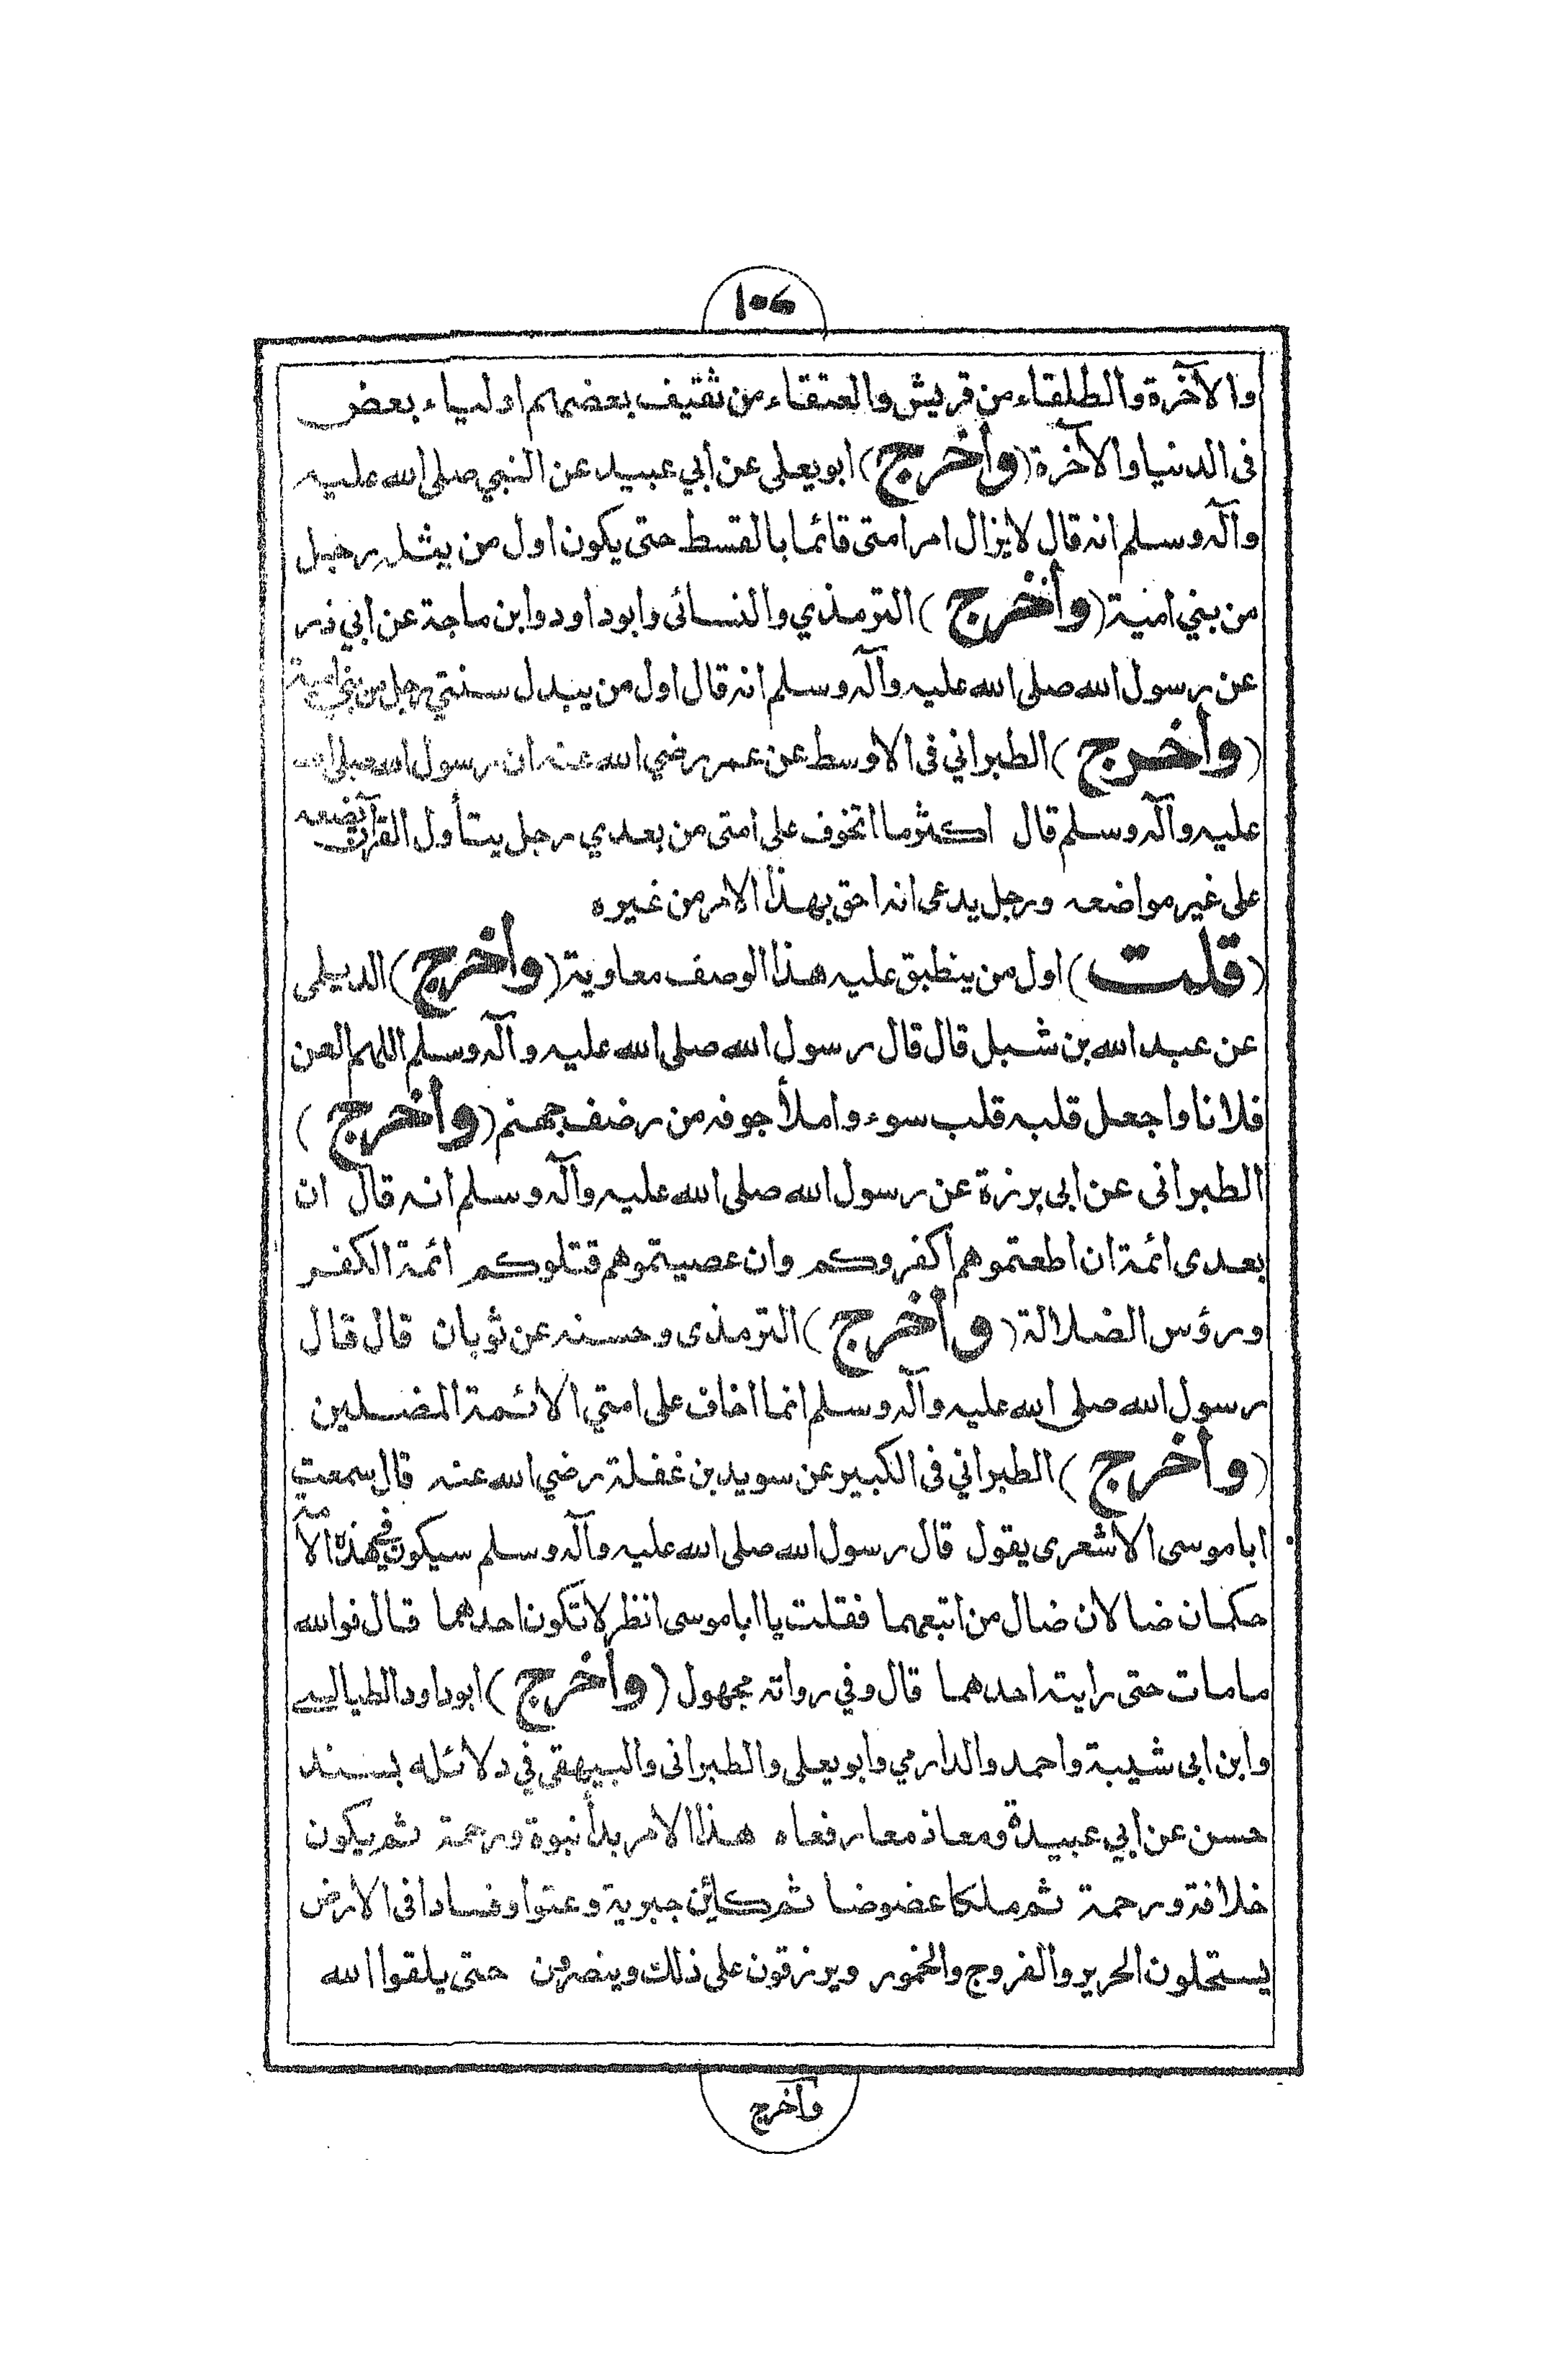 ١٠٦
والآخرة والطلقاء من قريش والعتقاء من ثقيف بعضهم اولياء بعض
فى الدنيا والآخرة (وأخرج) ابو يعلى عن أبي عبيد عن النبي صلى الله عليه
وآله وسلم انه قال لا يزال امر امتى قائما بالقسط حتى يكون اول من يثلمه رجل
من بني امية (وأخرج) الترمذي والنسائى وابو داود وابن ماجة عن ابي ذر
عن رسول الله صلى الله عليه وآله وسلم انه قال اول من يبدل سنتي رجل من بني امية
(وأخرج) الطبراني فى الاوسط عن عمر رضي الله عنه ان رسول الله صلى الله
عليه وآله وسلم قال اكثر ما اتخوف على امتى من بعدي رجل يتأول القرآن يضعه
على غير مواضعه ورجل يدعى انه احق بهذا الامر من غيره
(قلت) اول من ينطبق عليه هذا الوصف معاوية (وأخرج) الديلمى
عن عبد الله بن شبل قال قال رسول الله صلى الله عليه وآله وسلم اللهم العن
فلانا واجعل قلبه قلب سوء واملأ جوفه من رضف جهنم (وأخرج)
الطبرانى عن ابى برزة عن رسول الله صلى الله عليه وآله وسلم انه قال ان
بعدى ائمة ان اطعتموهم اكفروكم وان عصيتموهم قتلوكم ائمة الكفر
ورؤس الضلالة (وأخرج) الترمذى وحسنه عن ثوبان قال قال
رسول الله صلى الله عليه وآله وسلم انما اخاف على امتي الائمة المضلين
(وأخرج) الطبراني فى الكبير عن سويد بن غفلة رضي الله عنه قال سمعت
ابا موسى الاشعرى يقول قال رسول الله صلى الله عليه وآله وسلم سيكون في هذه الامة
حكمان ضالان ضال من اتبعهما فقلت يا ابا موسى انظر لا تكون احدهما قال فوالله
ما مات حتى رايته احدهما قال وفي رواته مجهول (وأخرج) ابو داود الطيالسي
وابن ابى شيبة واحمد والدارمي وابو يعلى والطبرانى والبيهقى في دلائله بسند
حسن عن ابي عبيدة ومعاذ معا رفعاه هذا الامر بدأ نبوة ورحمة ثم يكون
خلافة ورحمة ثم ملكا عضوضا ثم كائن جبرية وعتوا وفسادا فى الارض
يستحلون الحرير والفروج والخمور ويرزقون على ذلك وينصرون حتى يلقوا الله
وأخرج